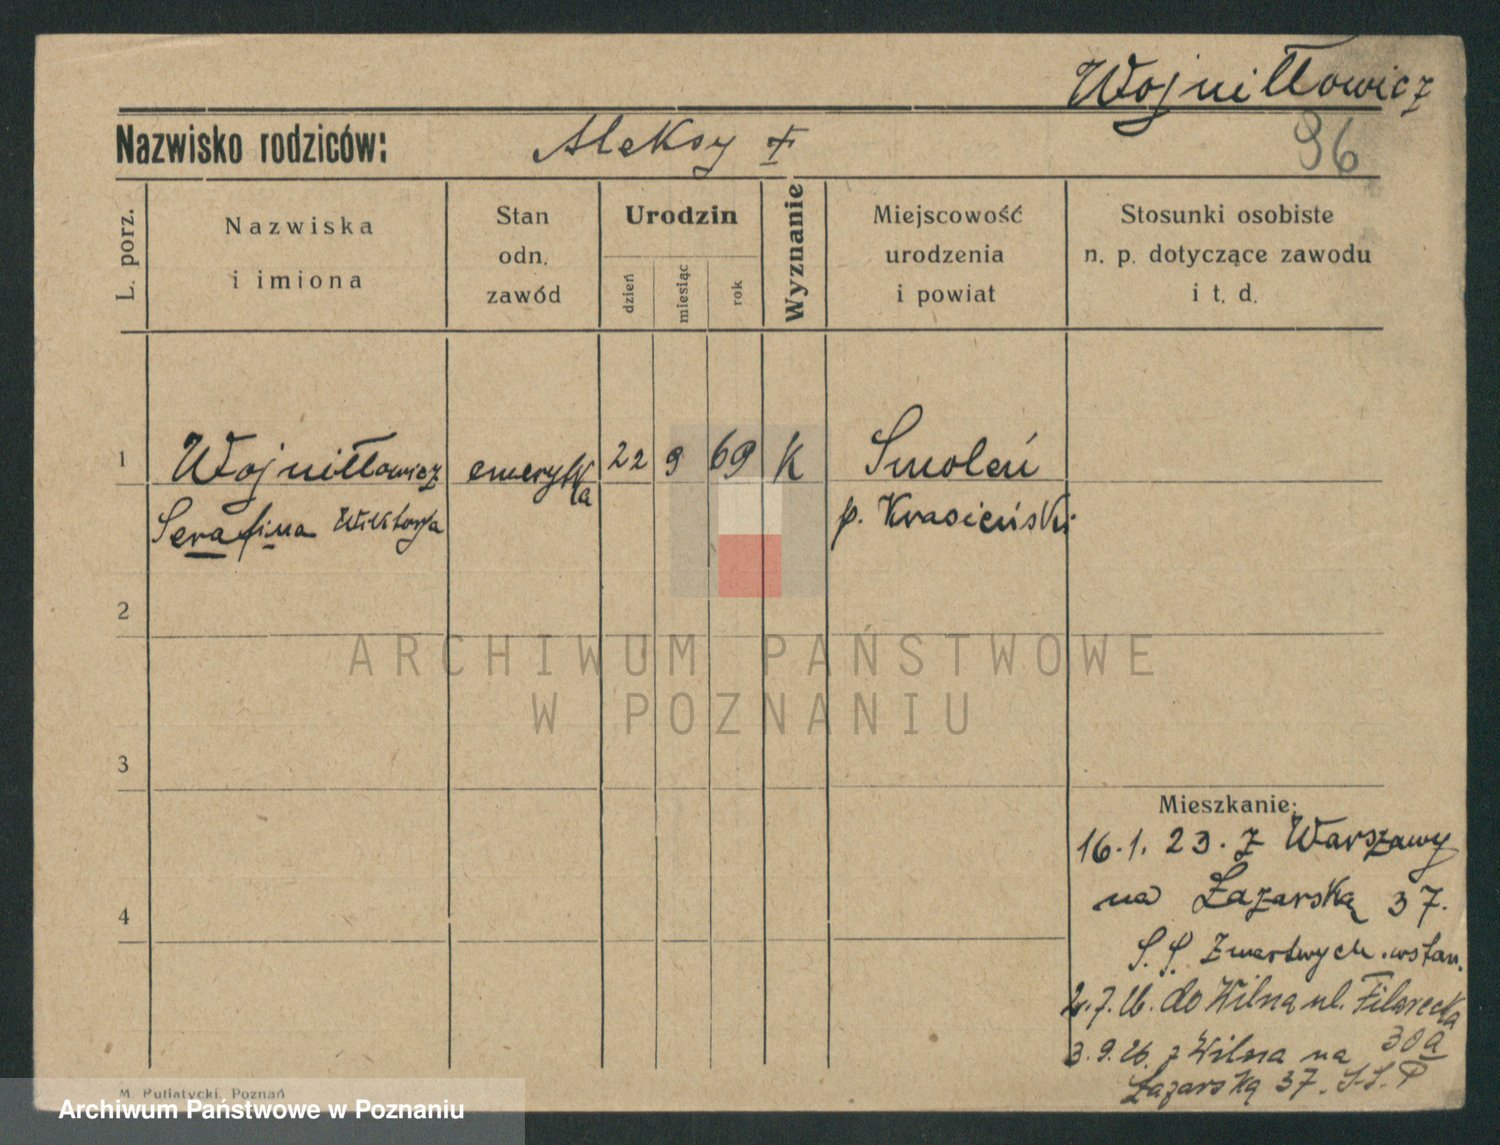 Wojniłłowicz
96
Nazwisko rodziców: Aleksy
L. porz.
Nazwiska
i imiona
Stan
odn.
zawód
Urodzin
dzień
miesiąc
rok
Wyznanie
Miejscowość
urodzenia
i powiat
Stosunki osobiste
n. p. dotyczące zawodu
i t. d.
1 Wojniłłowicz emerytka 22 9 69 K Smoleń
Serafina Wiktorja p. Krasieński
2
ARCHIWUM PAŃSTWOWE
W POZNANIU
3
Mieszkanie:
16.1.23. z Warszawy
na Łazarską 37.
4
S.S. Zmartwychwstan.
2.7.26. do Wilna ul. Filarecka
30a
3.9.26. z Wilna na
Łazarską 37. S.S.
M. Putiatycki, Poznań
Archiwum Państwowe w Poznaniu